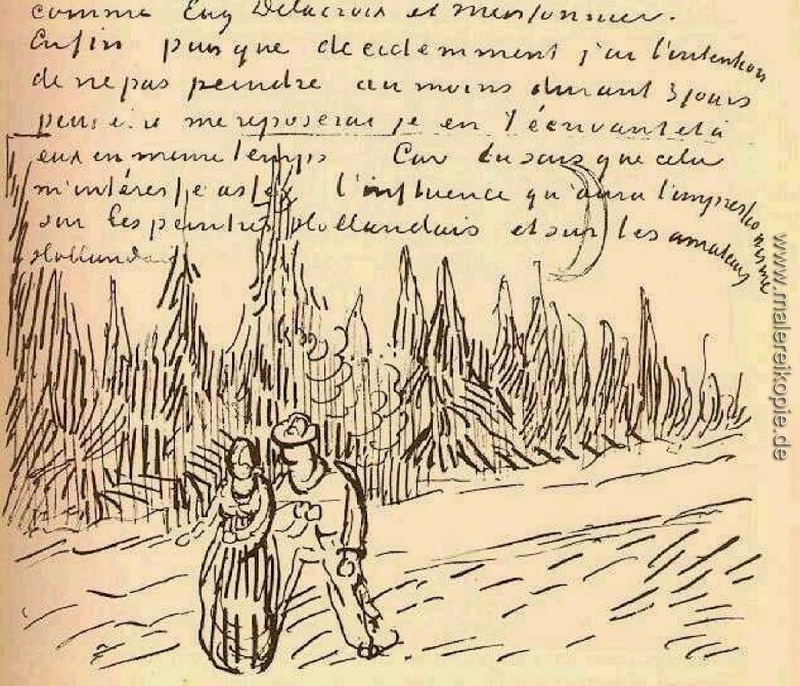 comme Eug Delacroix et meissonnier.
Enfin puisque decidemment j'ai l'intention
de ne pas peindre au moins durant 3 jours
peut être me reposerai je en t'écrivant et à
eux en meme temps Car tu sais que cela
m'intéresse assez l'influence qu'aura l'impressionisme
sur les peintres Hollandais et sur les amateurs
Hollandais
www.malereikopie.de